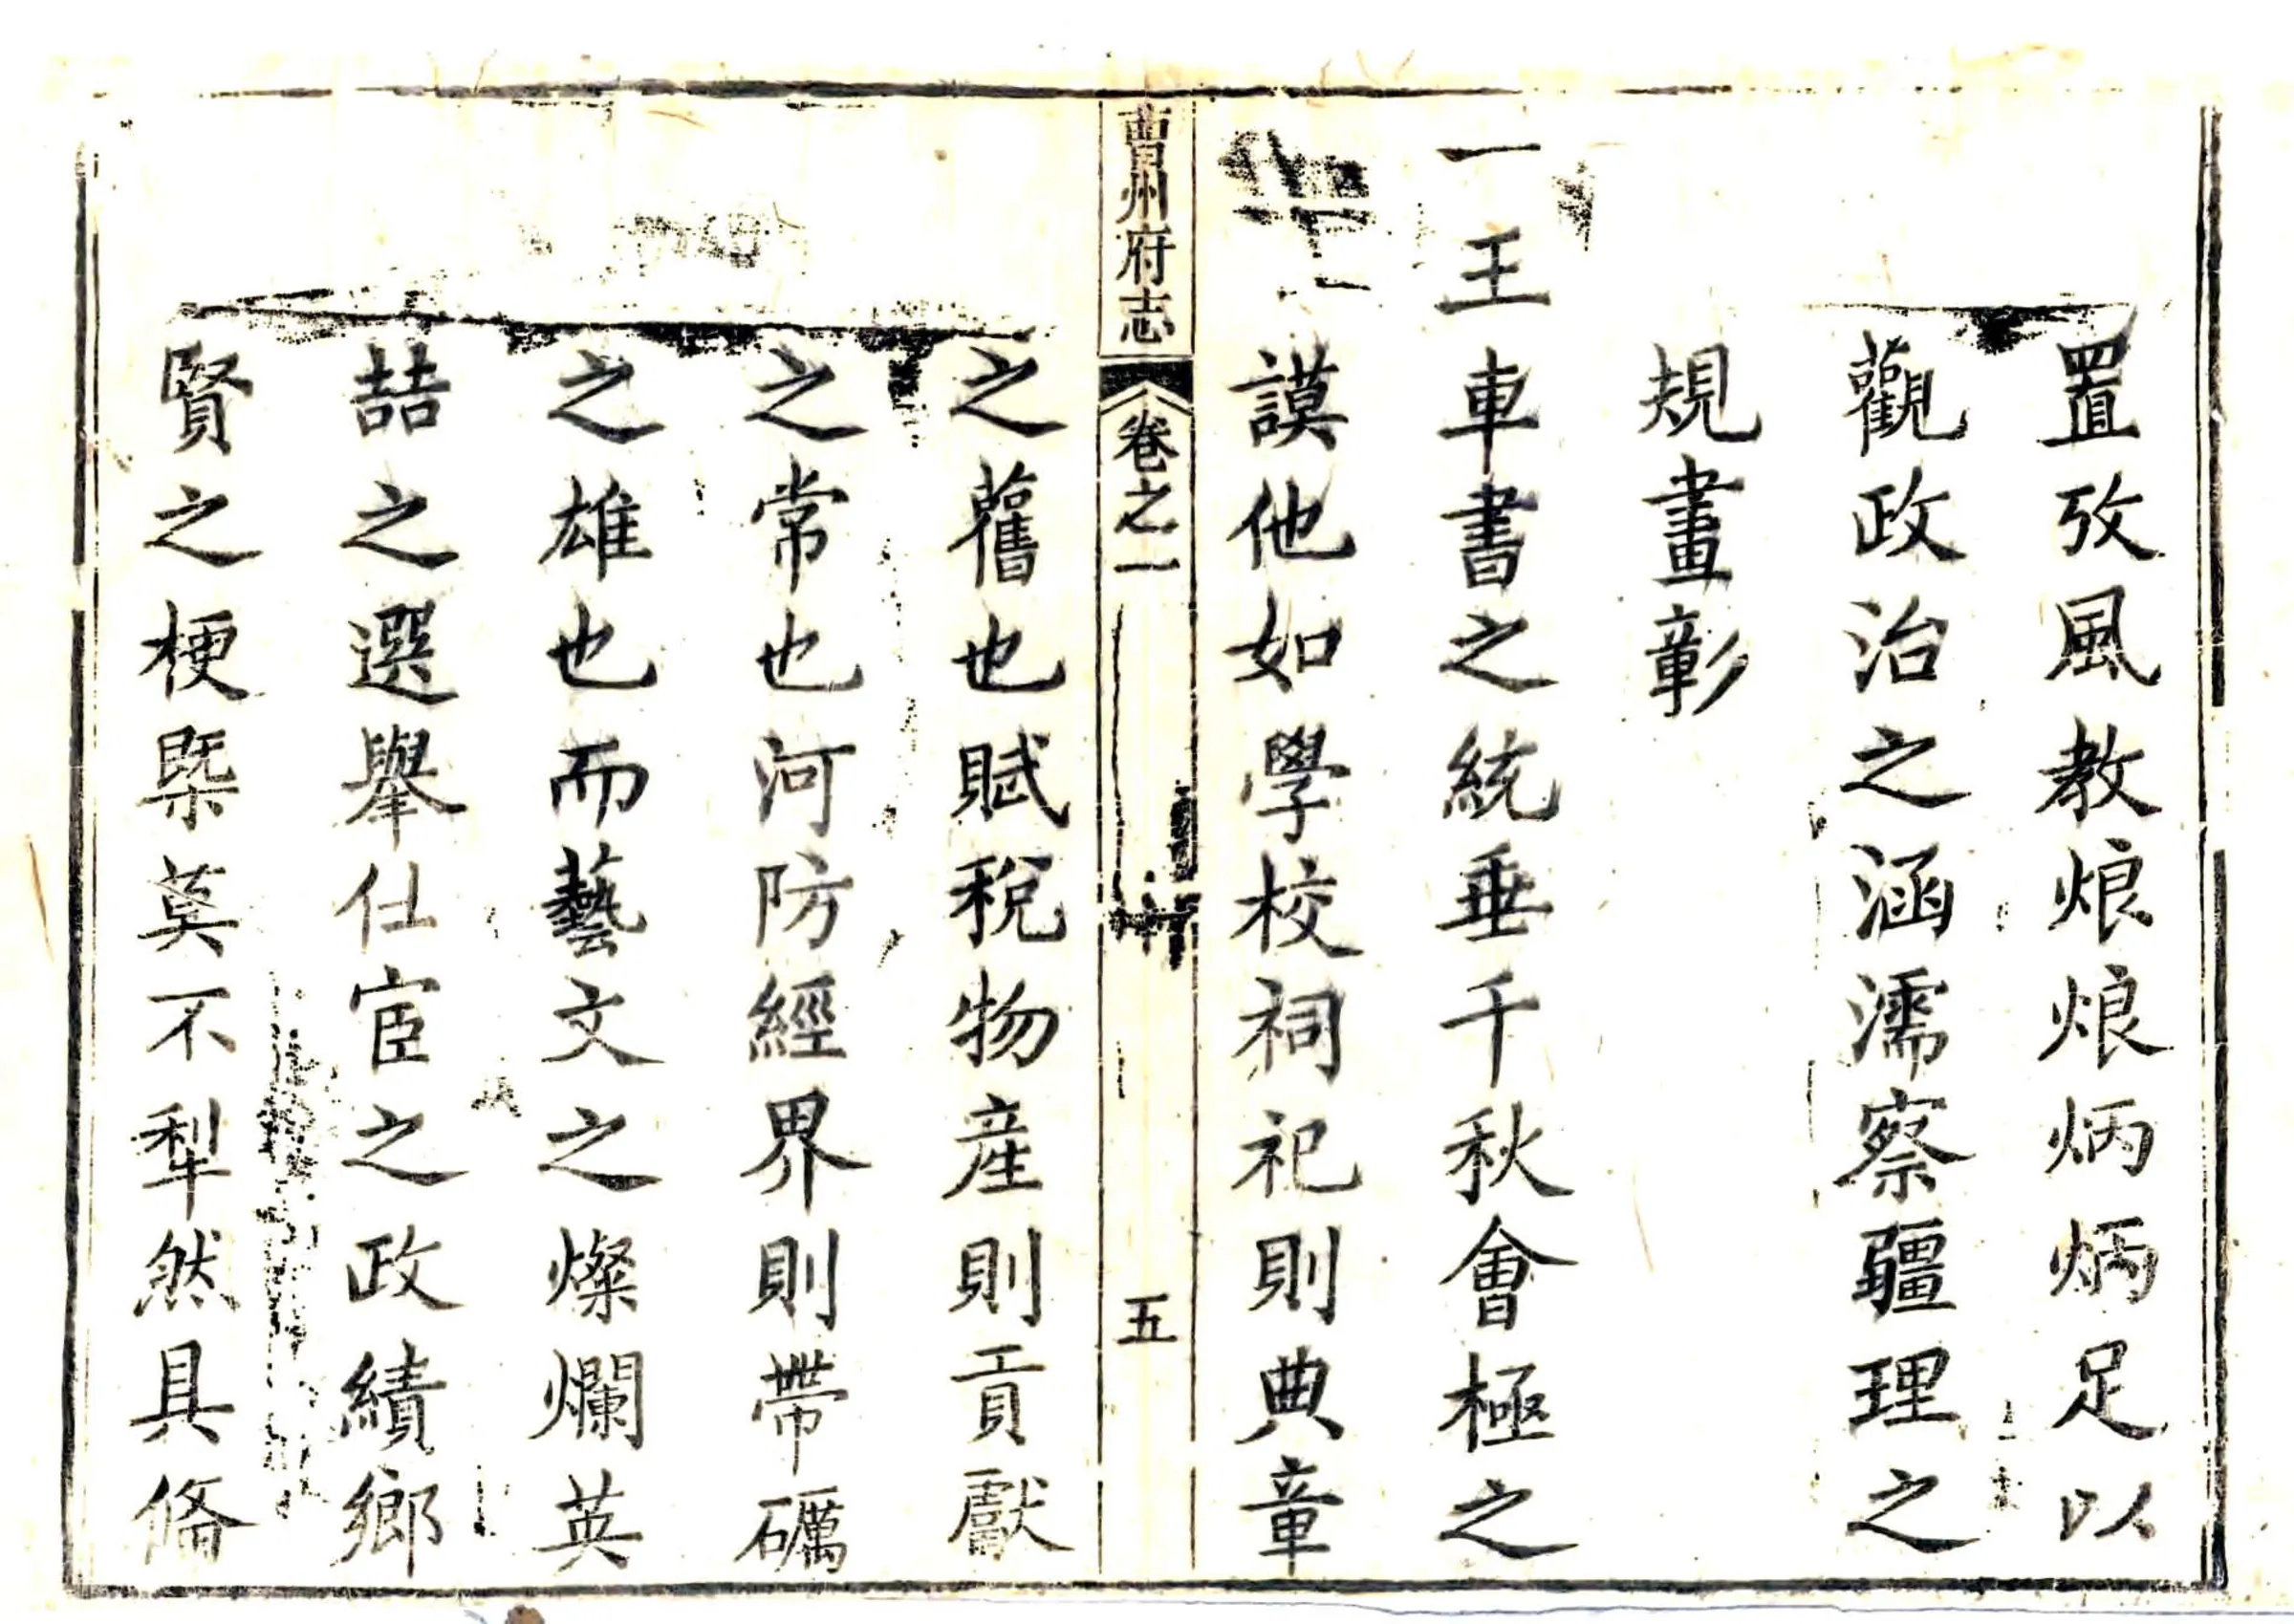 置攷風教烺烺炳炳足以
觀政治之涵濡察疆理之
規畫彰
一王車書之統垂千秋會極之
謨他如學校祠祀則典章
曹州府志
卷之一
五
之舊也賦稅物產則貢獻
之常也河防經界則帶礪
之雄也而藝文之燦爛英
喆之選舉仕宦之政績鄉
賢之梗槩莫不犁然具偹